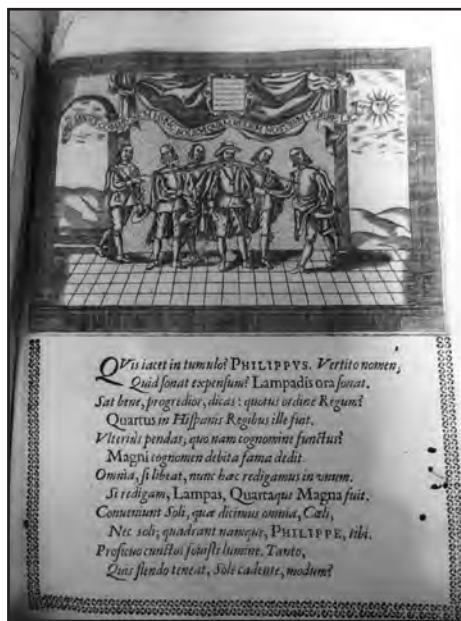 QVis iacet in tumulo? PHILIPPVS. Vertito nomen,
Quid sonat expensum? Lampadis ora sonat.
Sat bene, progredior, dicas: quotus ordine Regum?
Quartus in Hispanis Regibus ille fuit.
Vlterius pendas; quo nam cognomine functus?
Magni cognomen debita fama dedit.
Omnia, si libeat, nunc hæc redigamus in vnum.
Si redigam, Lampas, Quartaque Magna fuit.
Conueniunt Soli, quæ dicimus omnia, Cæli,
Nec soli; quadrant namque, PHILIPPE, tibi.
Proficuo cunctos fouisti lumine. Tanto,
Quis flendo teneat, Sole cadente, modum?